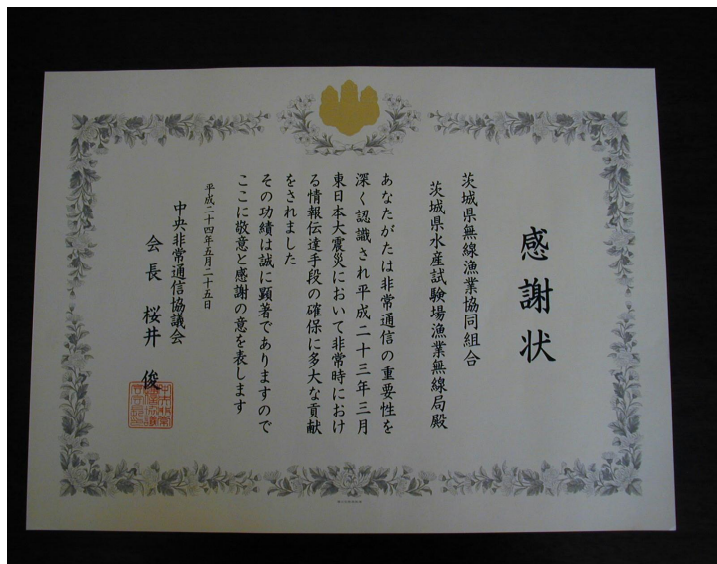 感謝状
茨城県無線漁業協同組合
茨城県水産試験場漁業無線局殿
あなたがたは非常通信の重要性を
深く認識され平成二十三年三月
東日本大震災において非常時におけ
る情報伝達手段の確保に多大な貢献
をされました
その功績は誠に顕著でありますので
ここに敬意と感謝の意を表します
平成二十四年五月二十五日
中央非常通信協議会
会長 桜井 俊